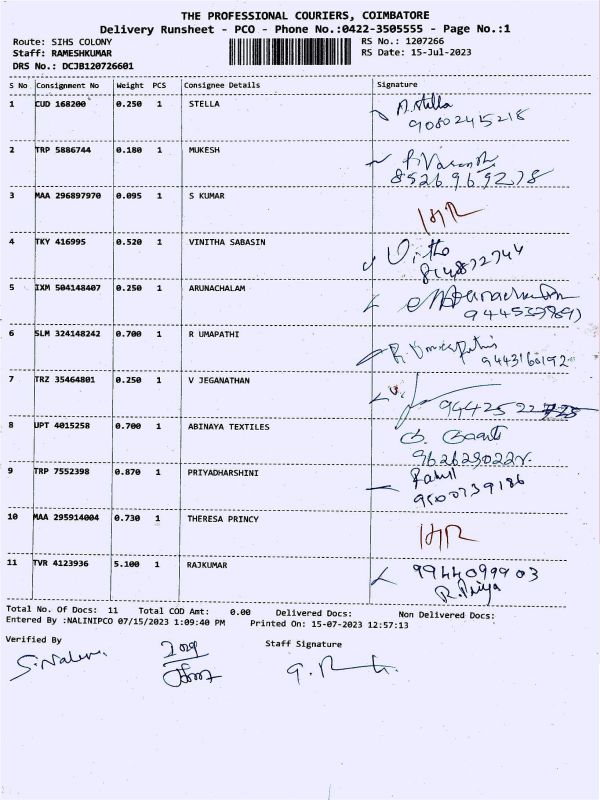 THE PROFESSIONAL COURIERS, COIMBATORE
Delivery Runsheet - PCO - Phone No.:0422-3505555 - Page No.:1
Route: SIHS COLONY RS No.: 1207266
Staff: RAMESHKUMAR RS Date: 15-Jul-2023
DRS No.: DCJB120726601
S No Consignment No Weight PCS Consignee Details Signature
1 CUD 168200 0.250 1 STELLA A. Stella
90802415218
2 TRP 5886744 0.180 1 MUKESH
3 MAA 296897970 0.095 1 S KUMAR
4 TKY 416995 0.520 1 VINITHA SABASIN
5 IXM 504148407 0.250 1 ARUNACHALAM
6 SLM 324148242 0.700 1 R UMAPATHI
9443160192
7 TRZ 35464801 0.250 1 V JEGANATHAN
8 UPT 4015258 0.700 1 ABINAYA TEXTILES
9 TRP 7552398 0.870 1 PRIYADHARSHINI
9500739186
10 MAA 295914004 0.730 1 THERESA PRINCY
11 TVR 4123936 5.100 1 RAJKUMAR 9944099903
R. Priya
Total No. Of Docs: 11 Total COD Amt: 0.00 Delivered Docs: Non Delivered Docs:
Entered By :NALINIPCO 07/15/2023 1:09:40 PM Printed On: 15-07-2023 12:57:13
Verified By Staff Signature